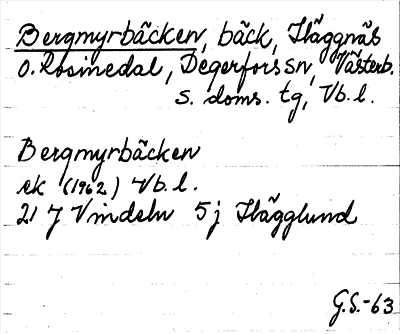 Bergmyrbäcken, bäck, Häggnäs
o. Rosinedal, Degerfors sn, Västerb.
s. doms. tg, Vb. l.
Bergmyrbäcken
ek (1962) Vb. l.
21 J Vindeln 5j Hägglund
G.S.-63